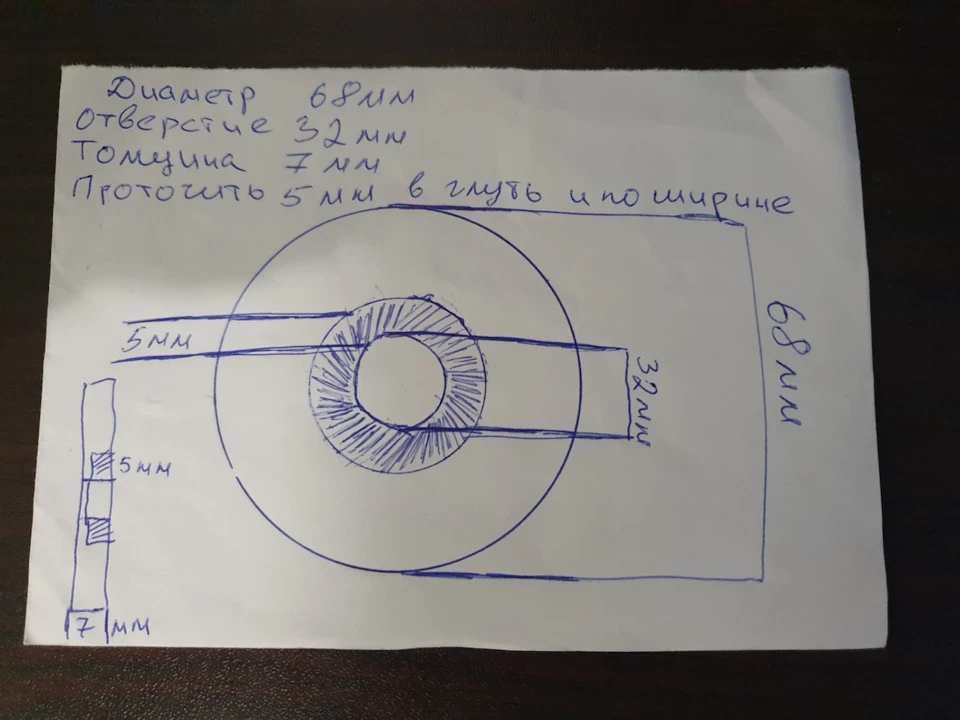 Диаметр 68мм
Отверстие 32мм
Томщина 7мм
Проточить 5мм в глуть и по ширине
5мм
32мм
68мм
5мм
7мм